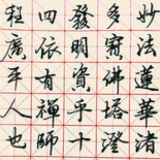 妙法蓮華諸
多寶佛塔證
發明資乎十
四依有禪師
程廣平人也